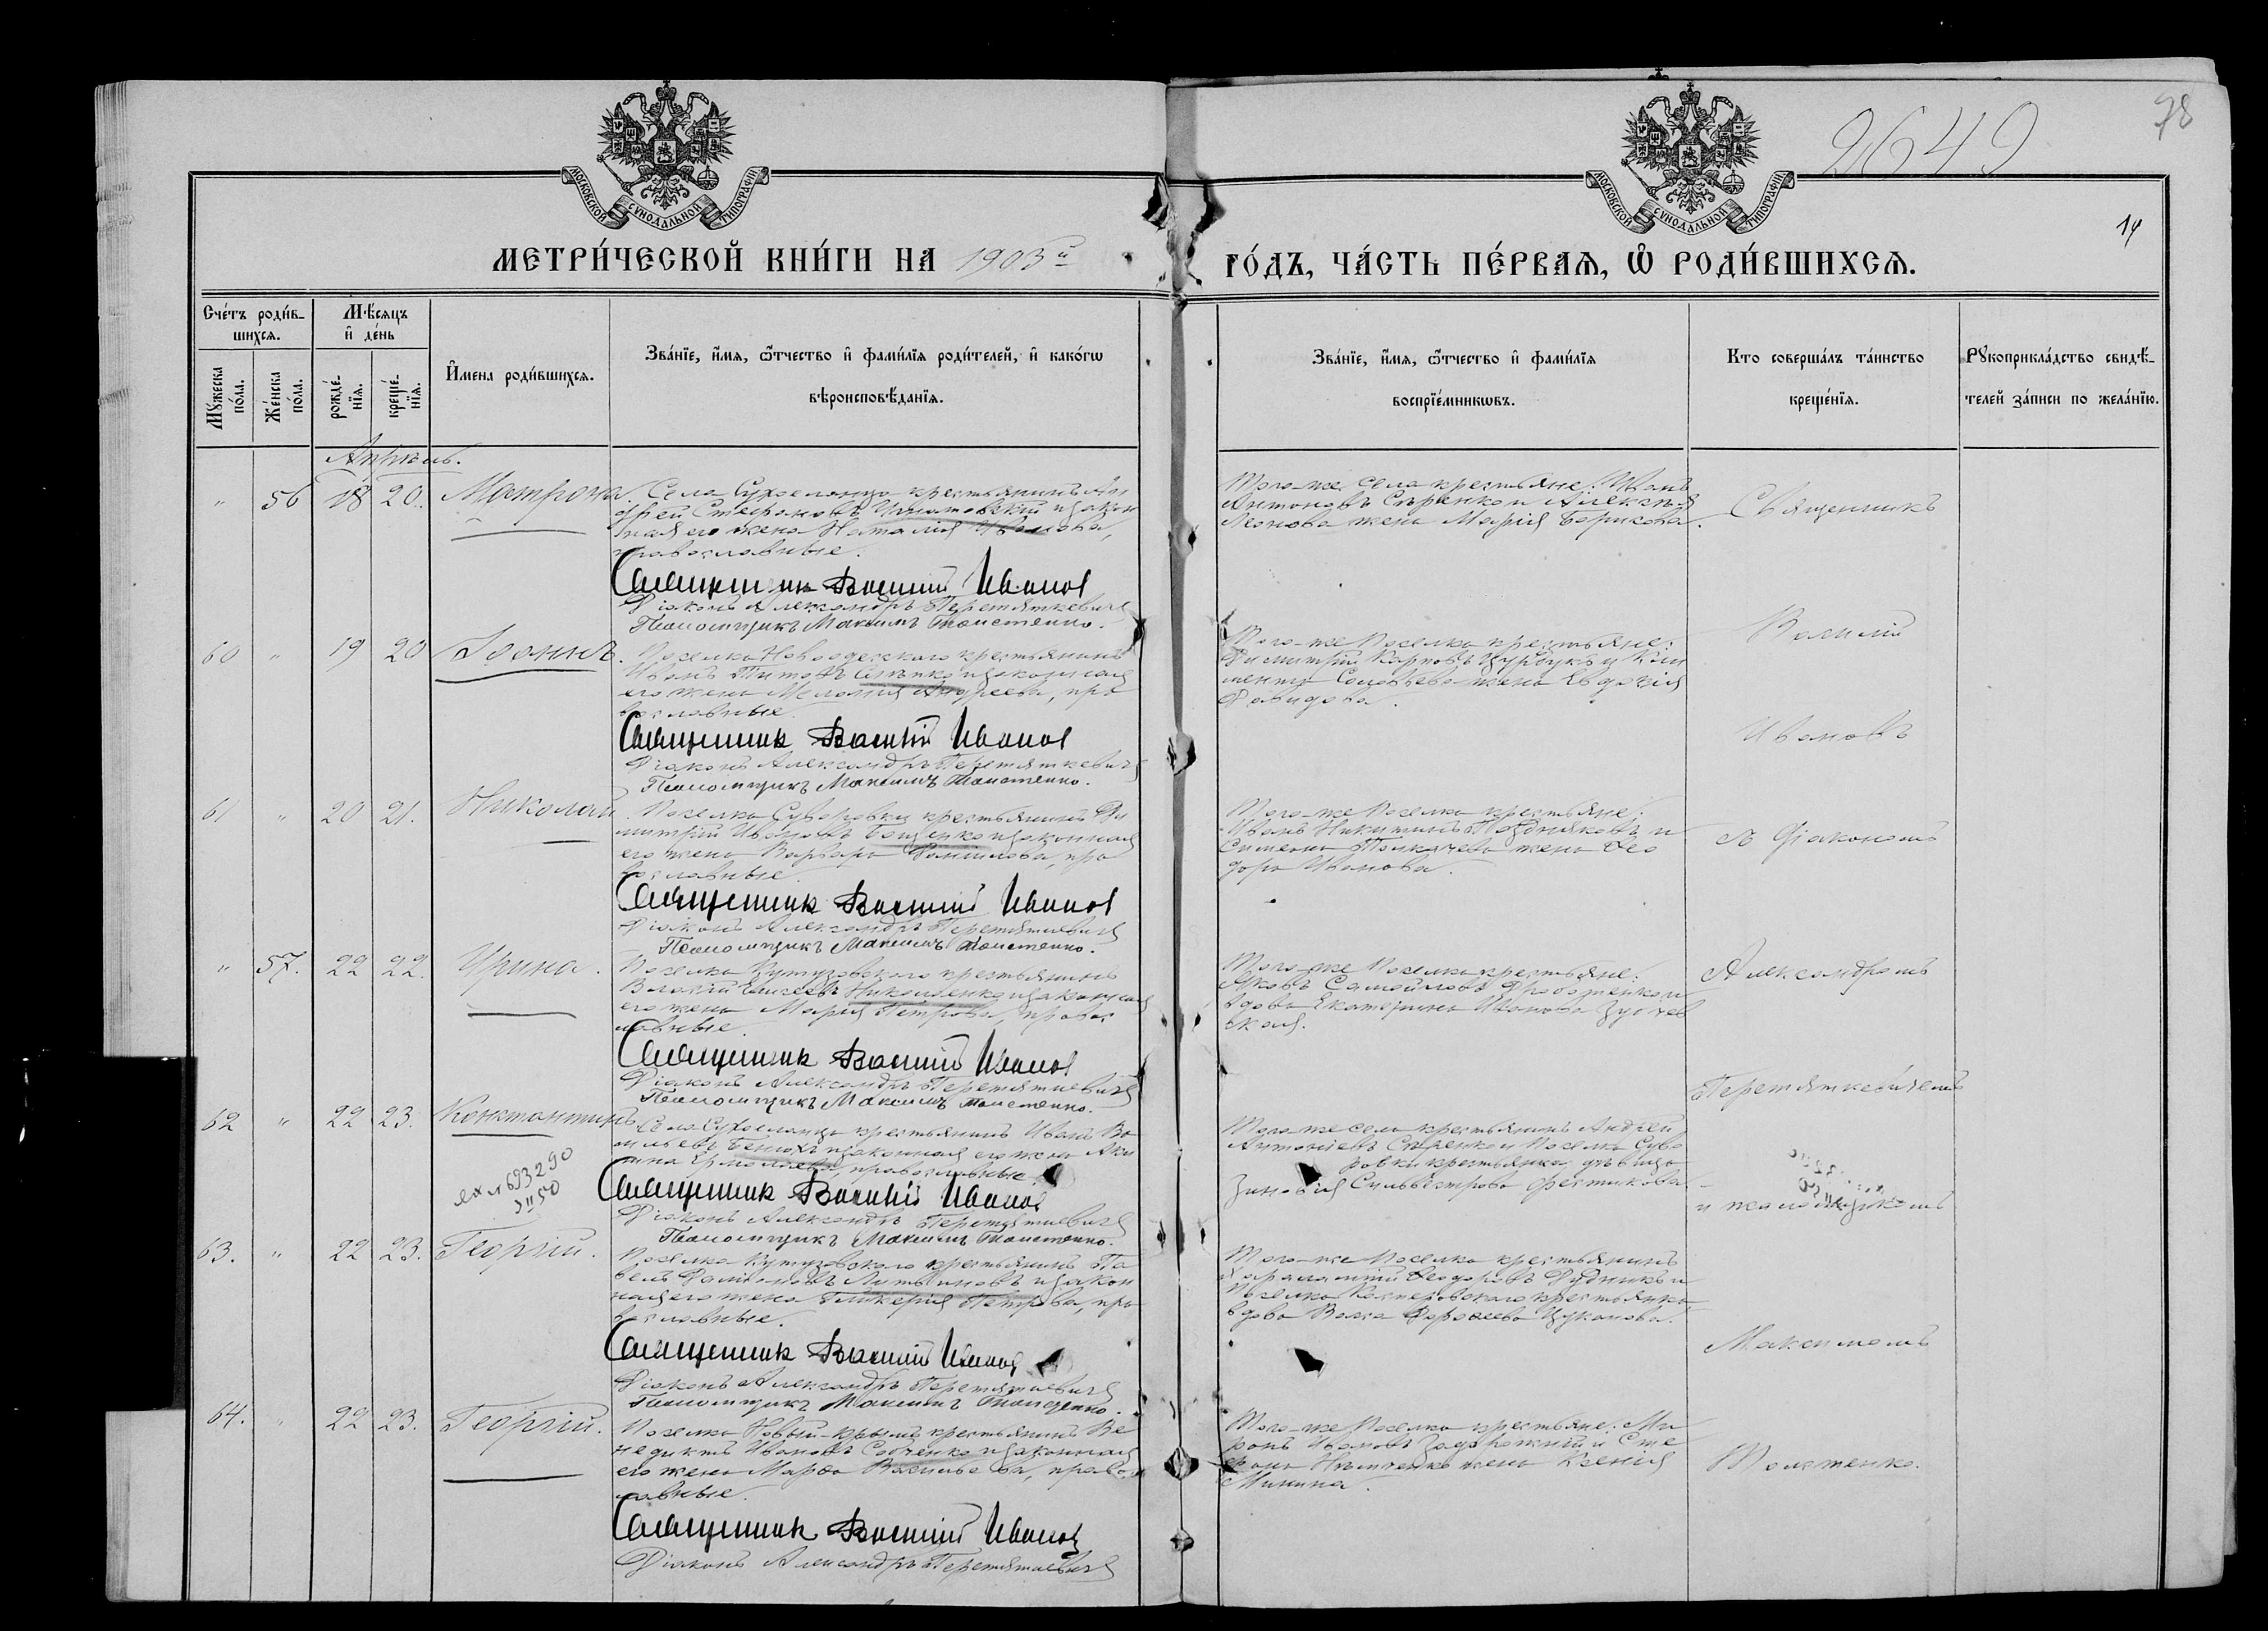 2649
78
14
МОСКОВСКОЙ СѴНОДАЛЬНОЙ ТИПОГРАФІИ
МОСКОВСКОЙ СѴНОДАЛЬНОЙ ТИПОГРАФІИ
МЕТРИ́ЧЕСКОЙ КНИ́ГИ НА 1903й
ГО́ДЪ, ЧА́СТЬ ПЕ́РВАЯ, Ѽ РОДИ́ВШИХСЯ.
Сче́тъ роди́в-
шихся.
Мꙋ́жеска по́ла.
Же́нска по́ла.
Мѣ́сяцъ
и҆ де́нь
рожде́-нїя.
креще́-нїя.
И҆мена роди́вшихся.
Зва́нїе, и҆́мя, ѻ҆́тчество и҆ фами́лїя роди́телей, и҆ како́гѡ
вѣроисповѣ́данїя.
Зва́нїе, и҆́мя, ѻ҆́тчество и҆ фами́лїя
воспрїе́мникѡвъ.
Кто соверша́лъ та́инство
креще́нїя.
Рꙋкоприкла́дство свидѣ́-
телей за́писи по жела́нїю.
Апрѣль.
" 56 18 20. Матрона.
Села Сухоеланца крестьянинъ Ан
дрей Стефановъ Игнатовскій и закон
ная его жена Наталія Иванова,
православные.
Священникъ Василий Иванов
Діаконъ Александръ Перетяткевичъ
Псаломщикъ Максимъ Толстенко.
Того-же села крестьяне: Иванъ
Антоновъ Сѣренко и Александра
Леонова жена Марія Борисова.
60 " 19 20 Іоаннъ.
Поселка Новоодесскаго крестьянинъ
Иванъ Титовъ и законная
его жена Меланія Андреева, пра
вославные.
Священникъ Василий Иванов
Діаконъ Александръ Перетяткевичъ
Псаломщикъ Максимъ Толстенко.
Того-же поселка крестьяне:
Димитрій Карповъ и Кли
мента Соловьева жена Евдокія
Давидова.
61 " 20 21. Николай
Поселка Суворовки крестьянинъ Ди
митрій Ивановъ Бощенко и законная
его жена Варвара Даніилова, пра
вославные.
Священникъ Василий Иванов
Діаконъ Александръ Перетяткевичъ
Псаломщикъ Максимъ Толстенко.
Того-же поселка крестьяне:
Иванъ Никитинъ Поздняковъ и
Симеона Толкачева жена Ѳео
дора Иванова.
" 57. 22 22. Ирина.
Поселка Кутузовскаго крестьянинъ
Василій Елисеевъ Николаенко и законная
его жена Марія Петрова, правос
лавные.
Священникъ Василий Иванов
Діаконъ Александръ Перетяткевичъ
Псаломщикъ Максимъ Толстенко.
Того-же поселка крестьяне:
Яковъ Самойловъ и
вдова Екатерина Иванова
ская.
62 " 22 23. Константинъ
693290
50
Села Сухоеланца крестьянинъ Иванъ Ва
сильевъ и законная его жена Аки
лина Ермолаева, православные.
Священникъ Василий Иванов
Діаконъ Александръ Перетяткевичъ
Псаломщикъ Максимъ Толстенко.
Того же села крестьянинъ Андрей
Антоніевъ Сѣренко и поселка Суво
ровки крестьянка дѣвица
Зиновія Сильвестрова
63. " 22 23. Георгій.
Поселка Кутузовскаго крестьянинъ Па
велъ Литвиновъ и закон
ная его жена Гликерія Петрова, пра
вославные.
Священникъ Василий Иванов
Діаконъ Александръ Перетяткевичъ
Псаломщикъ Максимъ Толстенко.
Того-же поселка крестьянинъ
Харалампій Ѳеодоровъ Рудникъ и
поселка крестьянка
вдова Васса Дороѳеева Цуканова.
64. " 22 23. Георгій.
Поселка Новый-Крымъ крестьянинъ Ве
недиктъ Ивановъ Собченко и законная
его жена Марѳа Васильева, правос
лавные.
Священникъ Василий Иванов
Діаконъ Александръ Перетяткевичъ
Того-же поселка крестьяне: Ми
ронъ Ивановъ Задорожній и Сте
фана жена Ксенія
Минина.
Священникъ
Василій
Ивановъ
съ діакономъ
Александромъ
Перетяткевичемъ
и псаломщикомъ
Максимомъ
Толстенко.